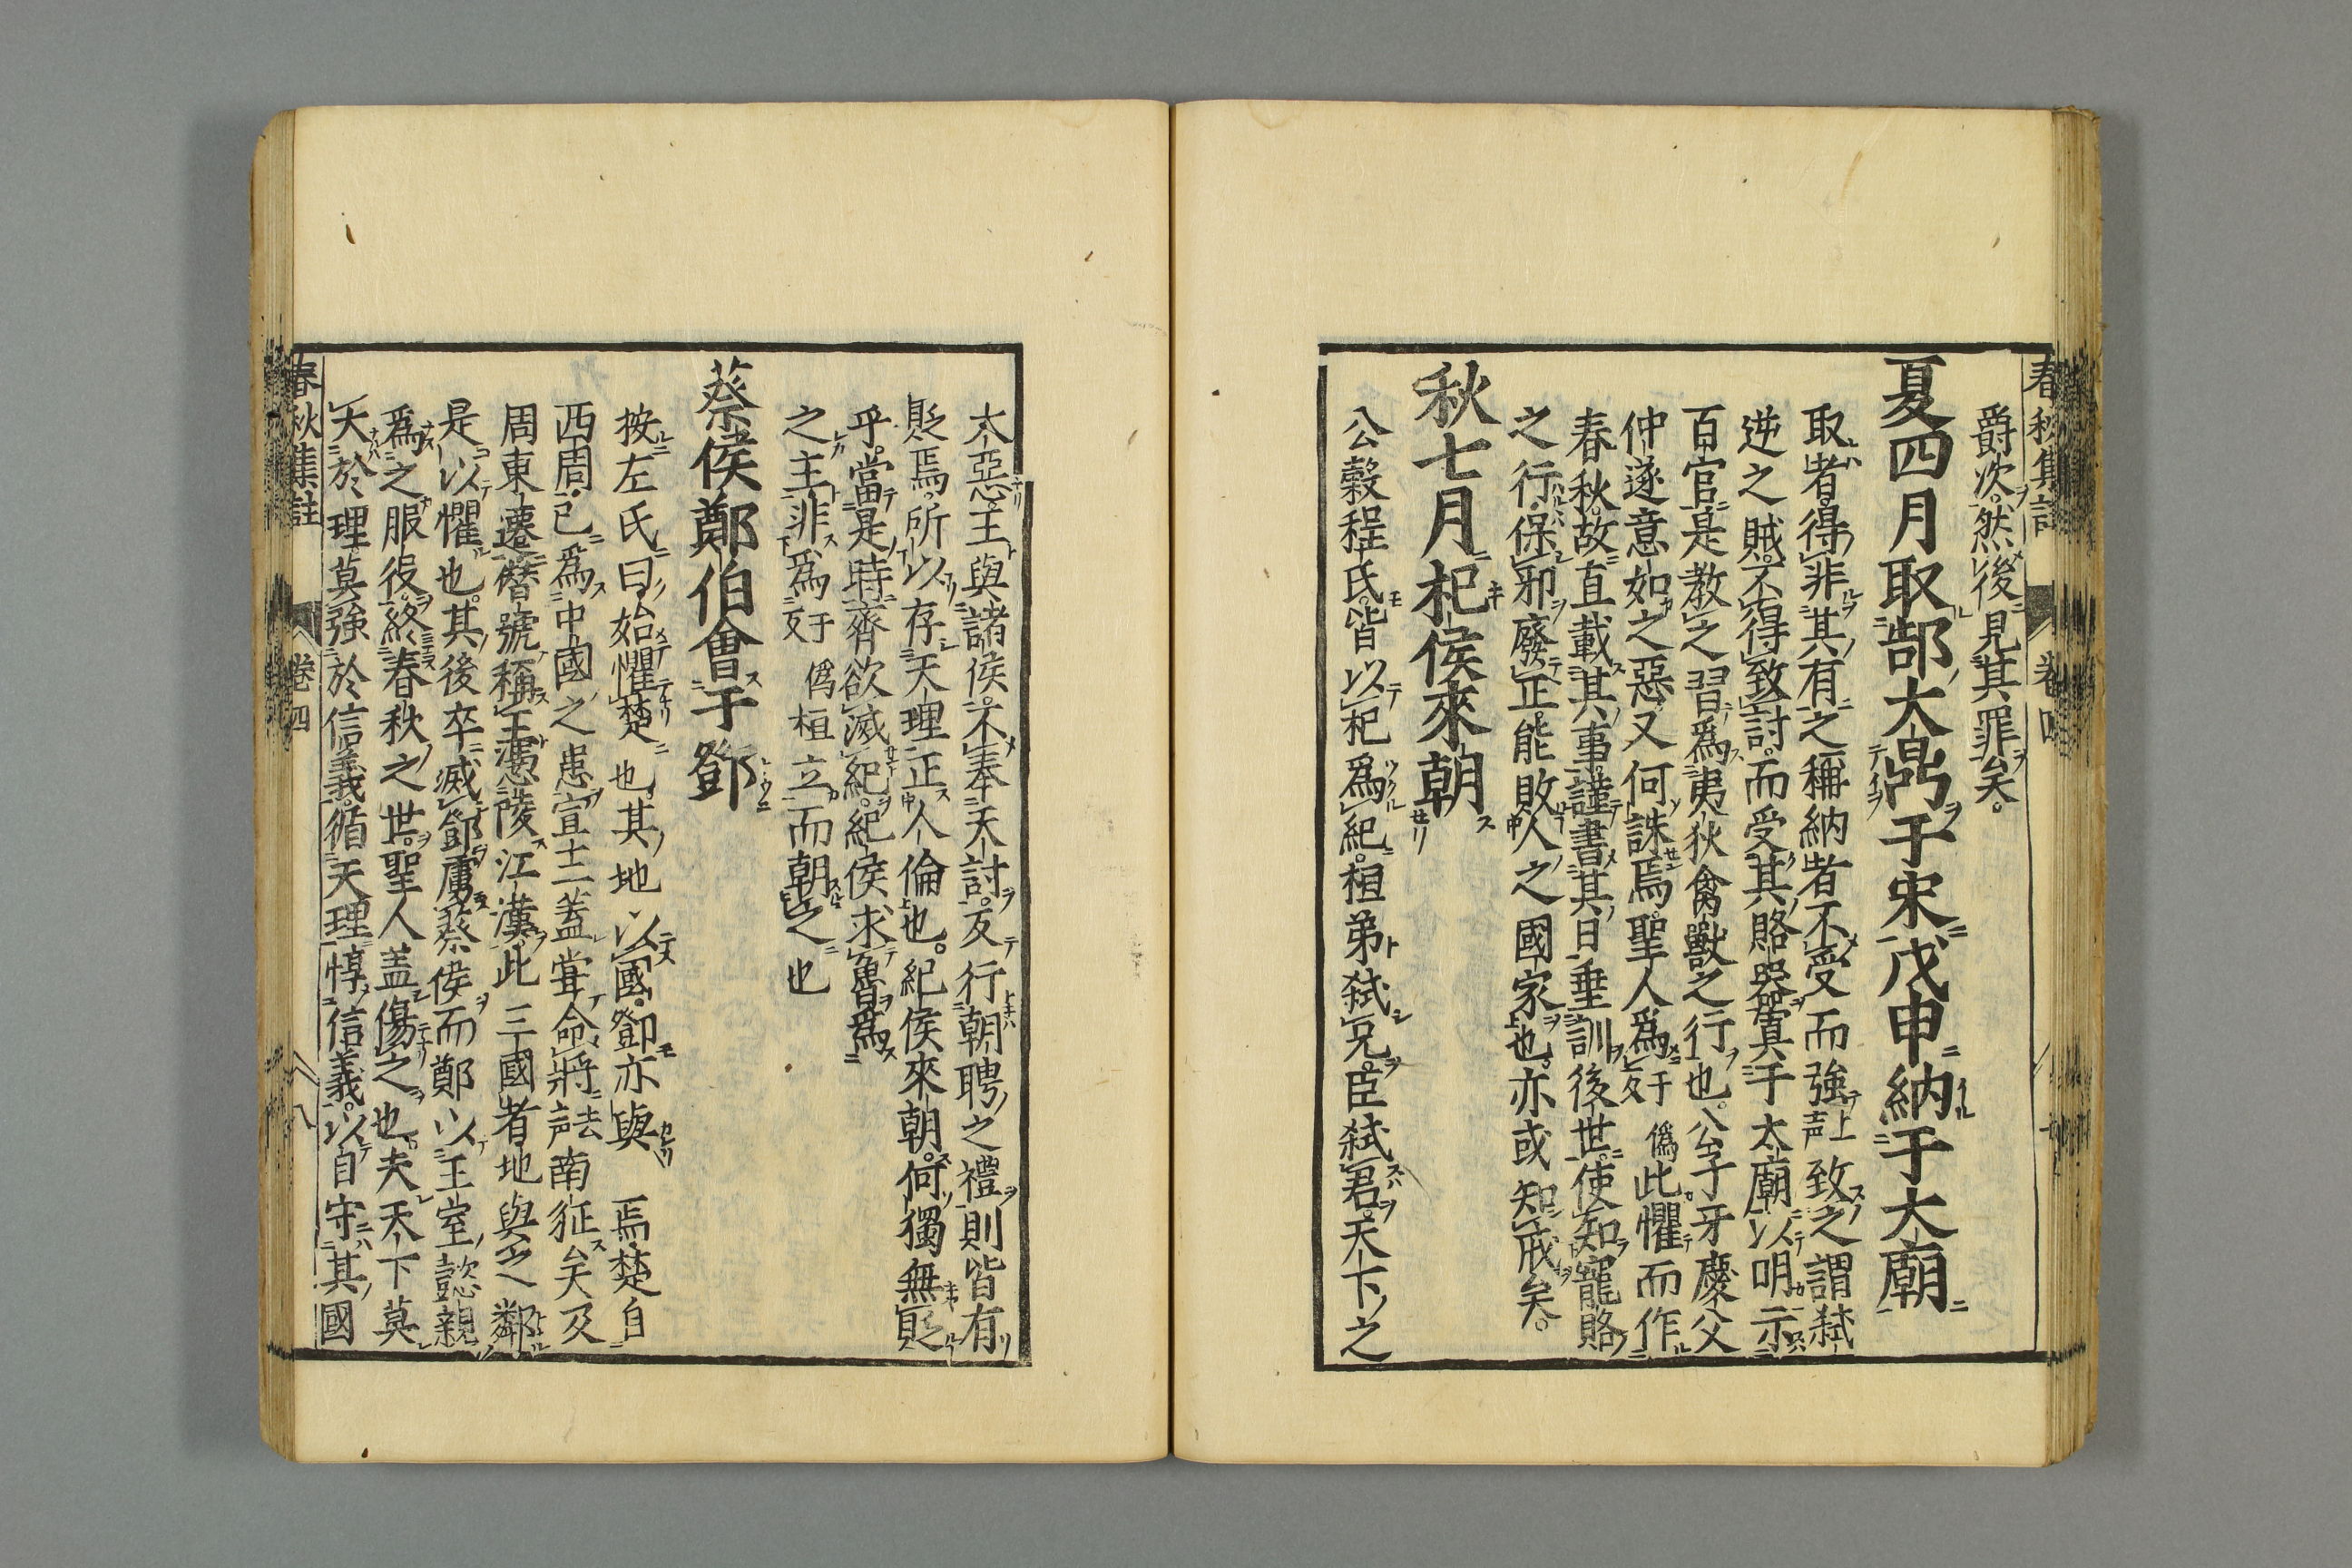 春秋集註 卷四
爵次然後見其罪矣。
夏四月取郜大鼎于宋戊申納于太廟
取者得非其有之稱納者不受而強上声致之謂弑
逆之賊不得致討而受其賂器寘于太廟以明示
百官是教之習爲夷狄禽獸之行也公子牙慶父
仲遂意如之惡又何誅焉聖人爲于偽反此懼而作
春秋故直載其事謹書其日垂訓後世使知寵賂
之行保邪廢正能敗人之國家也亦或知戒矣。
秋七月杞侯來朝
公穀程氏皆以杞爲紀桓弟弑兄臣弑君天下之
大惡王與諸侯不奉天討反行朝聘之禮則皆有
貶焉所以存天理正人倫也。紀侯來朝何獨無貶
乎當是時齊欲滅紀紀侯求魯爲
之主非爲于偽反桓立而朝之也
蔡侯鄭伯會于鄧
按左氏曰始懼楚也其地以國鄧亦與焉楚自
西周已爲中國之患宣王蓋甞命將去声南征矣及
周東遷僭號稱王憑陵江漢此三國者地與之鄰
是以懼也其後卒滅鄧虜蔡侯而鄭以王室懿親
爲之服役終春秋之世聖人盖傷之也夫天下莫
大於理莫強於信義循天理惇信義以自守其國
春秋集註 卷四 八